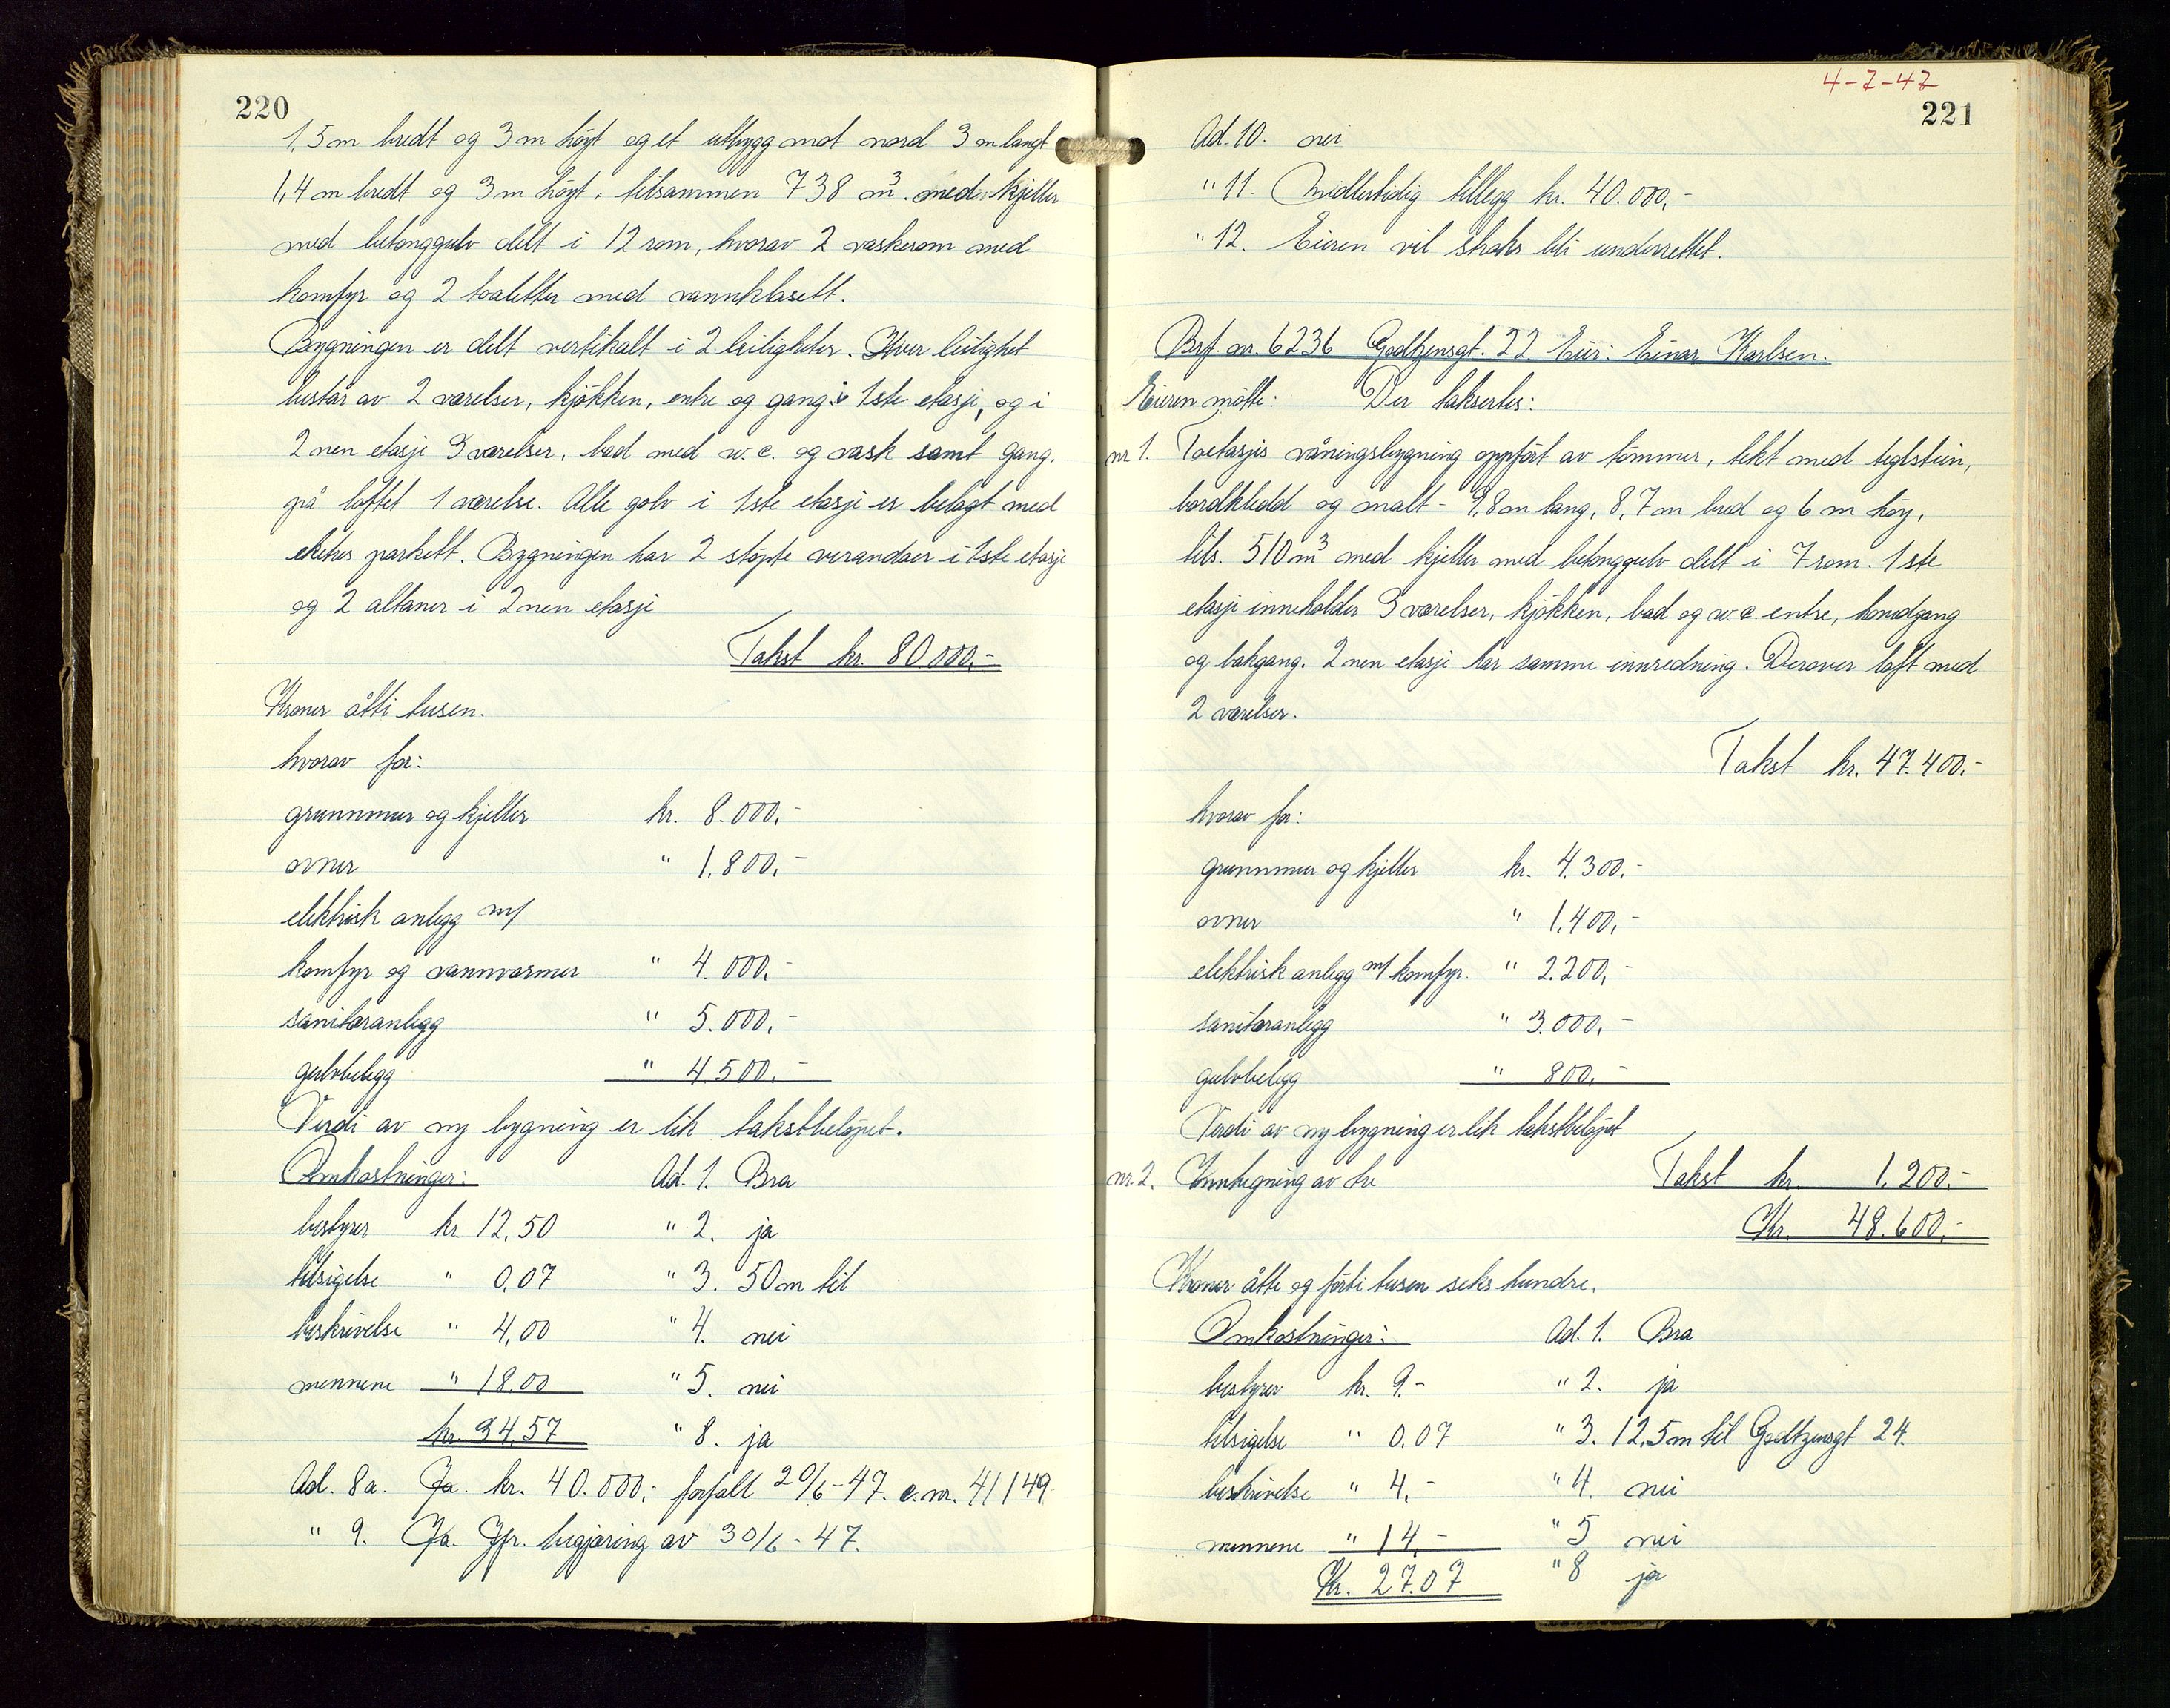 220
1,5 m bredt og 3 m høyt og et utbygg mot nord 3 m langt
1,4 m bredt og 3 m høyt, tilsammen 738 m³. med kjeller
med betonggulv delt i 12 rom, hvorav 2 vaskerom med
komfyr og 2 toaletter med vannklosett.
Bygningen er delt vertikalt i 2 leiligheter. Hver leilighet
består av 2 værelser, kjøkken, entre og gang i 1ste etasje, og i
2nen etasje 3 værelser, bad med w.c. og vask samt gang,
på loftet 1 værelse. Alle golv i 1ste etasje er belagt med
ekekes parkett. Bygningen har 2 støpte verandaer i 1ste etasje
og 2 altaner i 2nen etasje
Takst kr. 80 000,-
Kroner åtti tusen.
hvorav for:
grunnmur og kjeller kr. 8.000,-
ovner " 1.800,-
elektrisk anlegg m/
komfyr og vannvarmer " 4.000,-
sanitæranlegg " 5.000,-
gulvbelegg " 4500,-
Verdi av ny bygning er lik takstbeløpet.
Omkostninger: Ad. 1. Bra
bestyrer kr. 12,50 " 2. ja
tilsigelse " 0,07 " 3. 50 m til
beskrivelse " 4,00 " 4. nei
mennene " 18.00 " 5. nei
kr. 34,57 " 8. ja
Ad. 8a. Ja. kr. 40.000,- forfalt 20/6-47. c.nr. 41149
" 9. Ja. Jfr. begjæring av 30/6-47.
4-7-47
221
Ad. 10. nei
" 11. Midlertidig tillegg kr. 40.000,-
" 12. Eieren vil straks bli underrettet.
Brf. nr. 6236 Godtzensgt. 22 Eier: Einar Karlsen.
Eieren møtte: Der taksertes:
nr 1. Toetasjes våningsbygning oppført av tømmer, tekt med teglstein,
bordkledd og malt - 9,8 m lang, 8,7 m bred og 6 m høy,
tils. 510 m³ med kjeller med betonggulv delt i 7 rom. 1ste
etasje inneholder 3 værelser, kjøkken, bad og w.c. entre, hovedgang
og bakgang. 2nen etasje har samme innredning. Derover loft med
2 værelser.
Takst kr. 47.400,-
hvorav for:
grunnmur og kjeller kr. 4.300,-
ovner " 1.400,-
elektrisk anlegg m/ komfyr. " 2.200,-
sanitæranlegg " 3.000,-
gulvbelegg " 800,-
Verdi av ny bygning er lik takstbeløpet
nr. 2. Innhegning av tre Takst kr. 1.200,-
Kr. 48.600,-
Kroner åtte og førti tusen seks hundre.
Omkostninger: Ad. 1. Bra
bestyrer kr. 9.- " 2. ja
tilsigelse " 0.07 " 3. 12,5 m til Godtzensgt 24.
beskrivelse " 4,- " 4. nei
mennene " 14,- " 5 nei
Kr. 27.07 " 8 ja